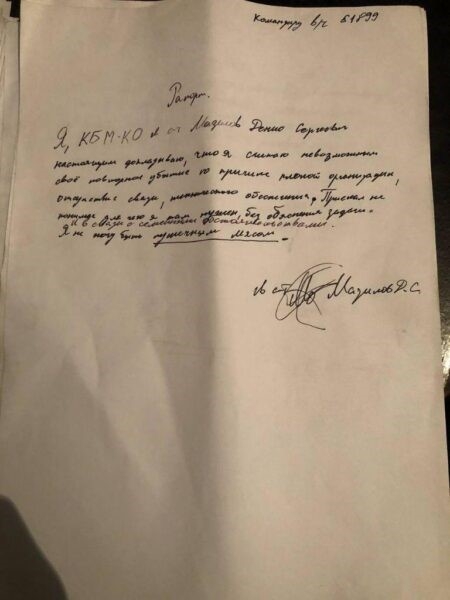 Командиру в/ч 51899
Рапорт.
Я, КБМ-КО Мазилов Денис Сергеевич
настоящим докладываю, что я считаю невозможным
своё повторное убытие по причине плохой организации,
отсутствие связи, технического обеспечения, Приехал не
для чего я там нужен, без объяснения задачи.
и в связи с семейными обстоятельствами.
Я не могу быть пушечным мясом.
гв Мазилов Д.С.